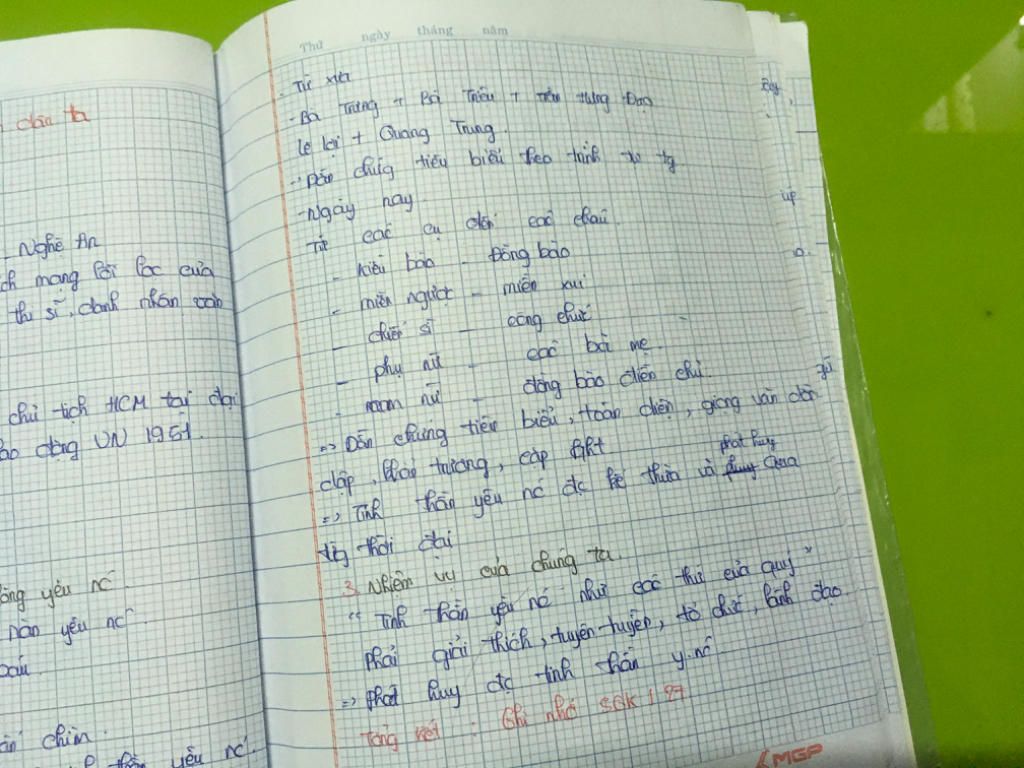 dân ta
Nghệ An
ch mạng lỗi lạc của
thi sĩ, danh nhân văn
chủ tịch HCM tại đại
lao động VN 1951.
lòng yêu nc
nàn yêu nc
chìm.
thần yêu nc.
Thứ ngày tháng năm
- Từ xưa
- Bà Trưng + Bà Triệu + Trần Hưng Đạo
Lê Lợi + Quang Trung.
-> Dẫn chứng tiêu biểu theo trình tự tg
- Ngày nay
Từ các cụ đến các cháu
- kiều bào - đồng bào
- miền ngược - miền xui
- chiến sĩ - công chức
- phụ nữ - các bà mẹ.
- nam nữ - đồng bào điền chủ.
=> Dẫn chứng tiêu biểu, toàn diện, giọng văn dồn
dập, khẩn trương, cặp
=> Tinh thần yêu nc đc kế thừa và phát huy qua
từg thời đại
3. Nhiệm vụ của chúng ta.
"Tinh thần yêu nc như các thứ của quý"
Phải giải thích, tuyên truyền, tổ chức, lãnh đạo
=> phát huy đc tinh thần y.nc
Tổng kết: Ghi nhớ SGK / 27
MGP